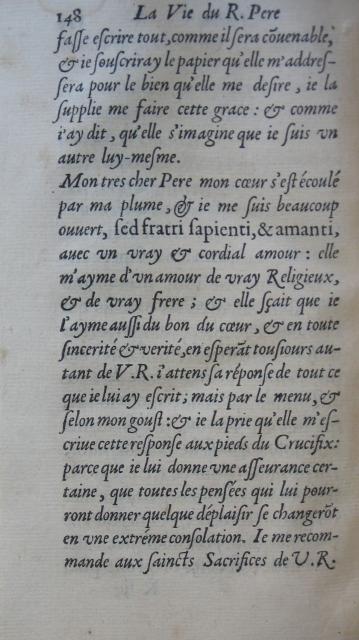 148 La Vie du R. Pere
fasse escrire tout, comme il sera cõuenable,
& ie souscriray le papier qu'elle m'addres-
sera pour le bien qu'elle me desire, ie la
supplie me faire cette grace : & comme
i'ay dit, qu'elle s'imagine que ie suis vn
autre luy-mesme.
Mon tres cher Pere mon cœur s'est écoulé
par ma plume, & ie me suis beaucoup
ouuert, sed fratri sapienti, & amanti,
auec vn vray & cordial amour : elle
m'ayme d'vn amour de vray Religieux,
& de vray frere ; & elle sçait que ie
l'ayme aussi du bon du cœur, & en toute
sincerité & verité, en esperãt tousiours au-
tant de V. R. i'attens sa réponse de tout ce
que ie lui ay escrit; mais par le menu, &
selon mon goust : & ie la prie qu'elle m'es-
criue cette response aux pieds du Crucifix:
parce que ie lui donne vne asseurance cer-
taine, que toutes les pensées qui lui pour-
ront donner quelque déplaisir se changerõt
en vne extréme consolation. Ie me recom-
mande aux saincts Sacrifices de V. R.